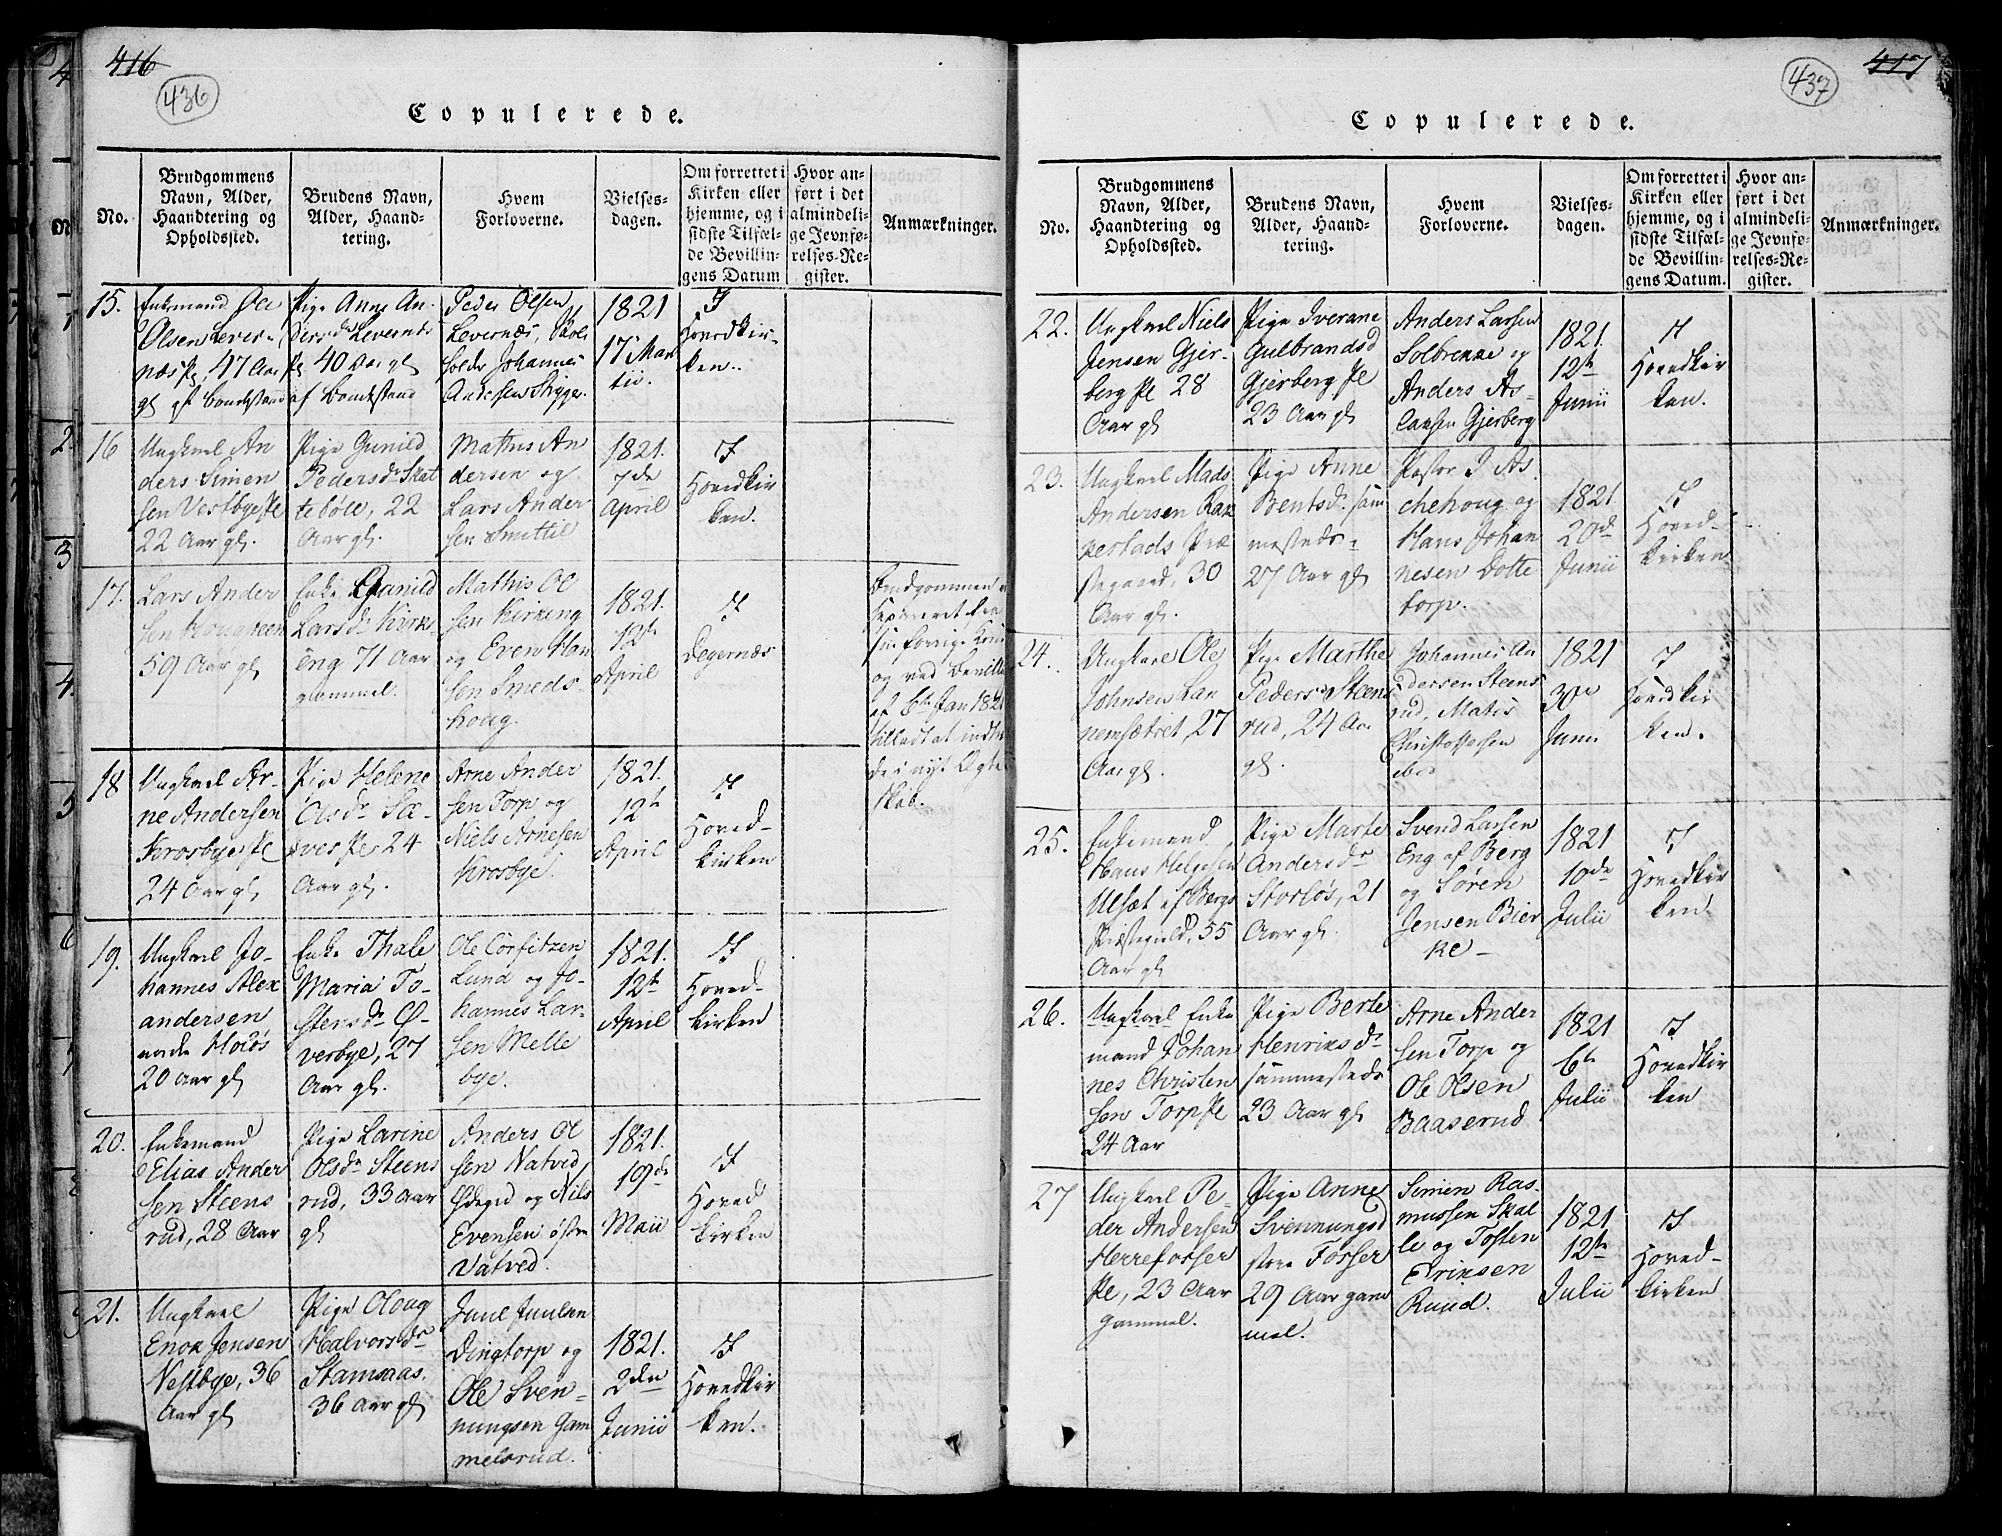 416
436
Copulerede.
No.
Brudgommens
Navn, Alder,
Haandtering og
Opholdssted.
Brudens Navn,
Alder, Haand-
tering.
Hvem
Forloverne.
Vielses-
dagen.
Om forrettet i
Kirken eller
hjemme, og i
sidste Tilfæl-
de Bevillin-
gens Datum
Hvor an-
ført i det
almindeli-
ge Jevnfø-
relses-Re-
gister.
Anmærkninger.
15.
Enkemand Ole
Olsen Lever-
næs 47 Aar
gl af Bondestand
Pige Anne An-
dersdr Levernæs
40 Aar gl
af Bondestand
Peder Olsen
Levernæs,
Johannes
Andersen
1821
17 Mar
tii.
I
Hovedkir-
ken.
16
Ungkarl An
ders Simen
sen Vestbye Pe
22 Aar gl.
Pige Gunild
Pedersdr Skat
tebøle, 22
Aar gl.
Mathis An
dersen og
Lars Ander
sen Smittil
1821.
7de
April
I
Hovedkir
ken.
17.
Lars Ander
sen
59 Aar gl
Enke Gunild
Larsdr Kirk-
eng 71 Aar
gammel.
Mathis Ol
sen Kirkeng
og Even Han
sen Smeds-
houg.
1821.
12te
April
I
Degernæs
Brudgommen
separeret fra
sin forrige Kone
og ved Bevilli
af 6te Jan 1821
tilladt at indtr
de i nyt Ægte
skab.
18
Ungkarl Ar-
ne Andersen
Krosbye Pe
24 Aar gl
Pige Helene
Olsdr Sæ-
ves Pe 24
Aar gl.
Arne Ander
sen Torp og
Niels Arnesen
Krosbye.
1821.
12te
April
I
Hoved-
kirken
19.
Ungkarl Jo-
hannes Alex
andersen
Hoiøs
20 aar gl
Enke Thale
Maria To-
stensdr Ø-
verbye, 27
Aar gl.
Ole Corfitzen
Lund og Jo-
hannes Lar-
sen Melle
bye.
1821.
12te
April
I
Hoved-
kirken
20.
Enkemand
Elias Ander
sen Steens
rud, 28 Aar
Pige Larine
Olsdr Steens
rud, 33 aar
gl
Anders Ol
sen Natved
Ødegrd og Nils
Evensen østre
Natved.
1821.
19de
Maii
I
Hoved
kirken
21.
Ungkarl
Enok Jensen
Vestbye, 36
Aar gl
Pige Oloug
Halvorsdr
Stamnæs.
36 Aar gl
Juul Juulsen
Dingtorp og
Ole Sven-
nungsen Gam
melsrud.
1821.
2den
Junii
I
Hovedkir
ken.
417
437
Copulerede.
No.
Brudgommens
Navn, Alder,
Haandtering og
Opholdssted.
Brudens Navn,
Alder, Haand-
tering.
Hvem
Forloverne.
Vielses-
dagen.
Om forrettet i
Kirken eller
hjemme, og i
sidste Tilfæl-
de Bevillin-
gens Datum.
Hvor an-
ført i det
almindeli-
ge Jevnfø-
relses-Re-
gister.
Anmærkninger.
22.
Ungkarl Niels
Jensen Gjer-
berg Pe 28
Aar gl
Pige Iverane
Gulbrandsd
Gjerberg Pe
23 Aar gl
Anders Larsen
Solbrekke og
Anders As-
Gjerberg
1821.
12te
Junii
I
Hovedkir
ken.
23.
Ungkarl Mads
Andersen Rak
kestads Præ
stegaard, 30
Aar gl.
Pige Anne
Bentsdr sam
mesteds
27 Aar gl
Pastor I As
chehoug og
Hans Johan
nesen Dotte
torp.
1821
20de
Junii
I
Hoved-
kirken
24.
Ungkarl Ole
Johnsen Lan
nemsætret, 27
Aar gl.
Pige Marthe
Pedersdr Steens
rud, 24 Aar
gl.
Johannes An
dersen Steens
rud, Matis
Christoffersen
1821
30te
Junii
I
Hovedkir
ken.
25.
Enkemand
Hans Helgesen
Ulsæt af Bergs
Præstegield, 55
Aar gl
Pige Marte
Andersdr
Storløs, 21
Aar gl.
Svend Larsen
Eng af Berg
og Søren
Jensen Bier
ke-
1821
10de
Julii
I
Hovedkir
ken
26.
Ungkarl Enke
mand Johan
nes Christen
sen Torp Pe
24 Aar
Pige Berte
Henriksdr
sammesteds
23 Aar gl
Arne Ander
sen Torp og
Ole Olsen
Baaserud
1821
6te
Julii
I
Hovedkir
ken
27
Ungkarl Pe
der Andersen
Herrefosser
Pe, 23 Aar
gammel.
Pige Anne
Svennungsd
store Fosser
29 Aar gam
mel.
Simen Ras-
mussen Skal
le og Tosten
Eriksen
Ruud.
1821
12te
Julii
I
Hoved-
kirken